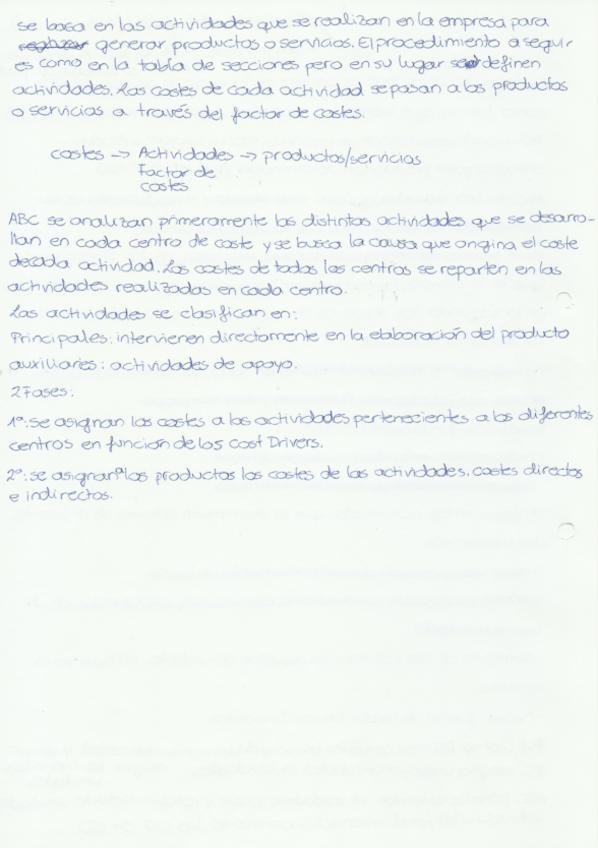 se basa en las actividades que se realizan en la empresa para
generar productos o servicios. El procedimiento a seguir
es como en la tabla de secciones pero en su lugar se definen
actividades. Los costes de cada actividad se pasan a los productos
o servicios a través del factor de costes.
costes → Actividades → productos/servicios
Factor de
costes
ABC se analizan primeramente las distintas actividades que se desarro-
llan en cada centro de coste y se busca la causa que origina el coste
de cada actividad. Los costes de todos los centros se reparten en las
actividades realizadas en cada centro.
Las actividades se clasifican en:
Principales: intervienen directamente en la elaboración del producto
auxiliares: actividades de apoyo.
2 Fases:
1º: se asignan los costes a las actividades pertenecientes a los diferentes
centros en función de los Cost Drivers.
2º: se asignan a los productos los costes de las actividades. costes directos
e indirectos.